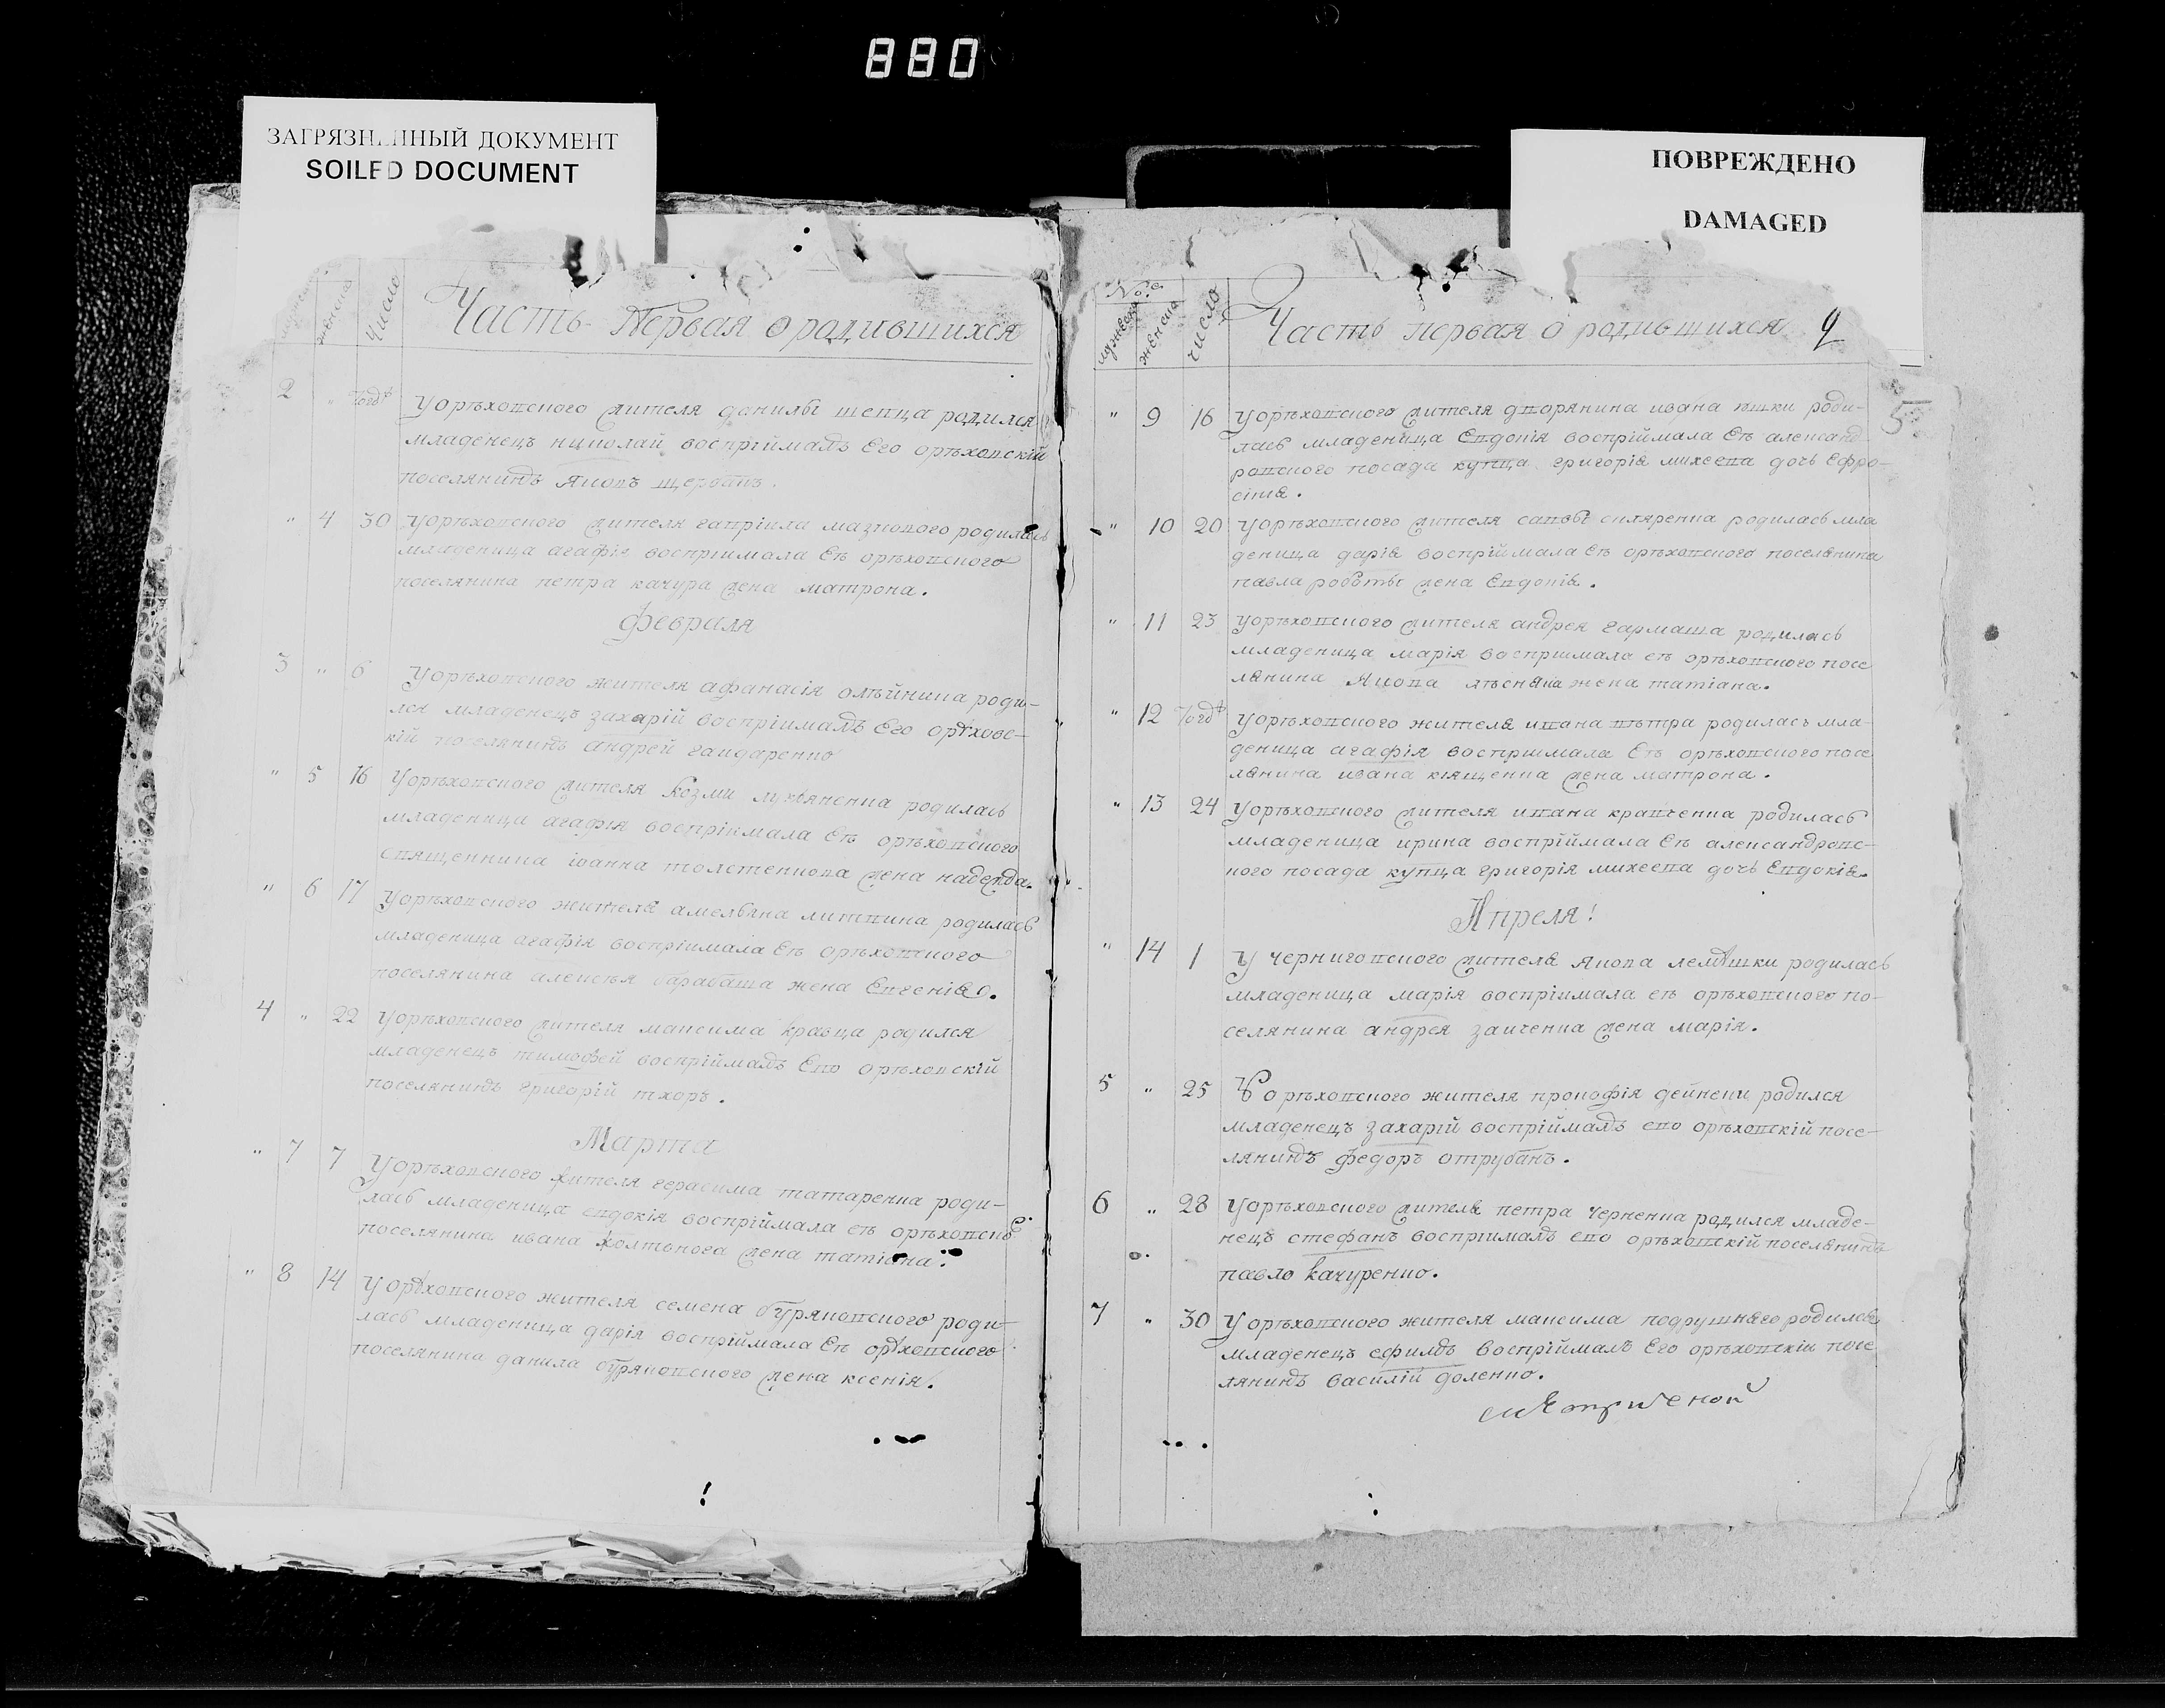 880
ЗАГРЯЗНЕННЫЙ ДОКУМЕНТ
SOILED DOCUMENT
ПОВРЕЖДЕНО
DAMAGED
женска
число
Часть Первая о родившихся
2 " тогожъ Уорѣховского жителя данилы шевца родился
младенецъ николай воспріймалъ Его орѣховскій
поселянинъ Яковъ щербань.
" 4 30 Уорѣховского жителя гавріила мазнового родилась
младеница агафія воспріимала Еѣ орѣховского
поселянина петра качура жена матрона.
Февраля
3 " 6 Уорѣховского жителя афанасія олѣйника роди-
лся младенецъ захарій воспріималъ Его орѣховс-
кій поселянинъ андрей гайдаренко
" 5 16 Уорѣховского жителя козми лукяненка родилась
младеница агафія воспріимала Еѣ орѣховского
священника іоанна толстенкова жена надежда.
" 6 17 Уорѣховского жителя амеляна литвина родилась
младеница агафія воспріимала Еѣ орѣховского
поселянина алексѣя барабаша жена Евгенія.
4 " 22 Уорѣховского жителя максима кравца родился
младенецъ тимофей воспріймалъ Его орѣховскій
поселянинъ григорій тхоръ.
Марта
" 7 7 Уорѣховского жителя герасима татаренка роди-
лась младеница евдокія воспріймала еѣ орѣховско
поселянина ивана колтьнога жена татіана.
" 8 14 Уорѣховского жителя семена буряковского роди-
лась младеница дарія воспріймала Еѣ орѣховского
поселянина данила буряковского жена ксенія.
№е
мужеска
женска
число
Часть первая о родившихся
5
" 9 16 Уорѣховского жителя дворянина ивана яшки роди-
лась младеница Евдокія воспріймала Еѣ александ-
ровского посада купца григорія михеева дочь Ефро-
сінія.
" 10 20 Уорѣховского жителя саввы скляренка родилась мла
деница дарія воспріймала Еѣ орѣховского поселянина
павла роботы жена Евдокія.
" 11 23 Уорѣховского жителя андрея гармаша родилась
младеница марія воспріимала еѣ орѣховского посе
лянина Якова лѣсняка жена татіана.
" 12 тогожъ Уорѣховского жителя ивана вѣтра родилась мла-
деница агафія воспріимала Еѣ орѣховского посе
лянина ивана кіященка жена матрона.
" 13 24 Уорѣховского жителя ивана кравченка родилась
младеница ирина воспріймала Еѣ александровс-
кого посада купца григорія михеева дочь Евдокія.
Апреля!
" 14 1 У черниговского жителя Якова лемѣшки родилась
младеница марія воспріимала еѣ орѣховского по-
селянина андрея заиченка жена марія.
5 " 25 У орѣховского жителя прокофія дейнеки родился
младенецъ захарій воспріймалъ его орѣховскій посе-
лянинъ федоръ отрубань.
6 " 28 Уорѣховского жителя петра Черненка родился младе-
нецъ стефанъ воспріималъ его орѣховскій поселянинъ
павло качуренко.
7 " 30 У орѣховского жителя максима подрушняго родился
младенецъ ефимъ воспріймалъ Его орѣховскій посе
лянинъ василій доленко.